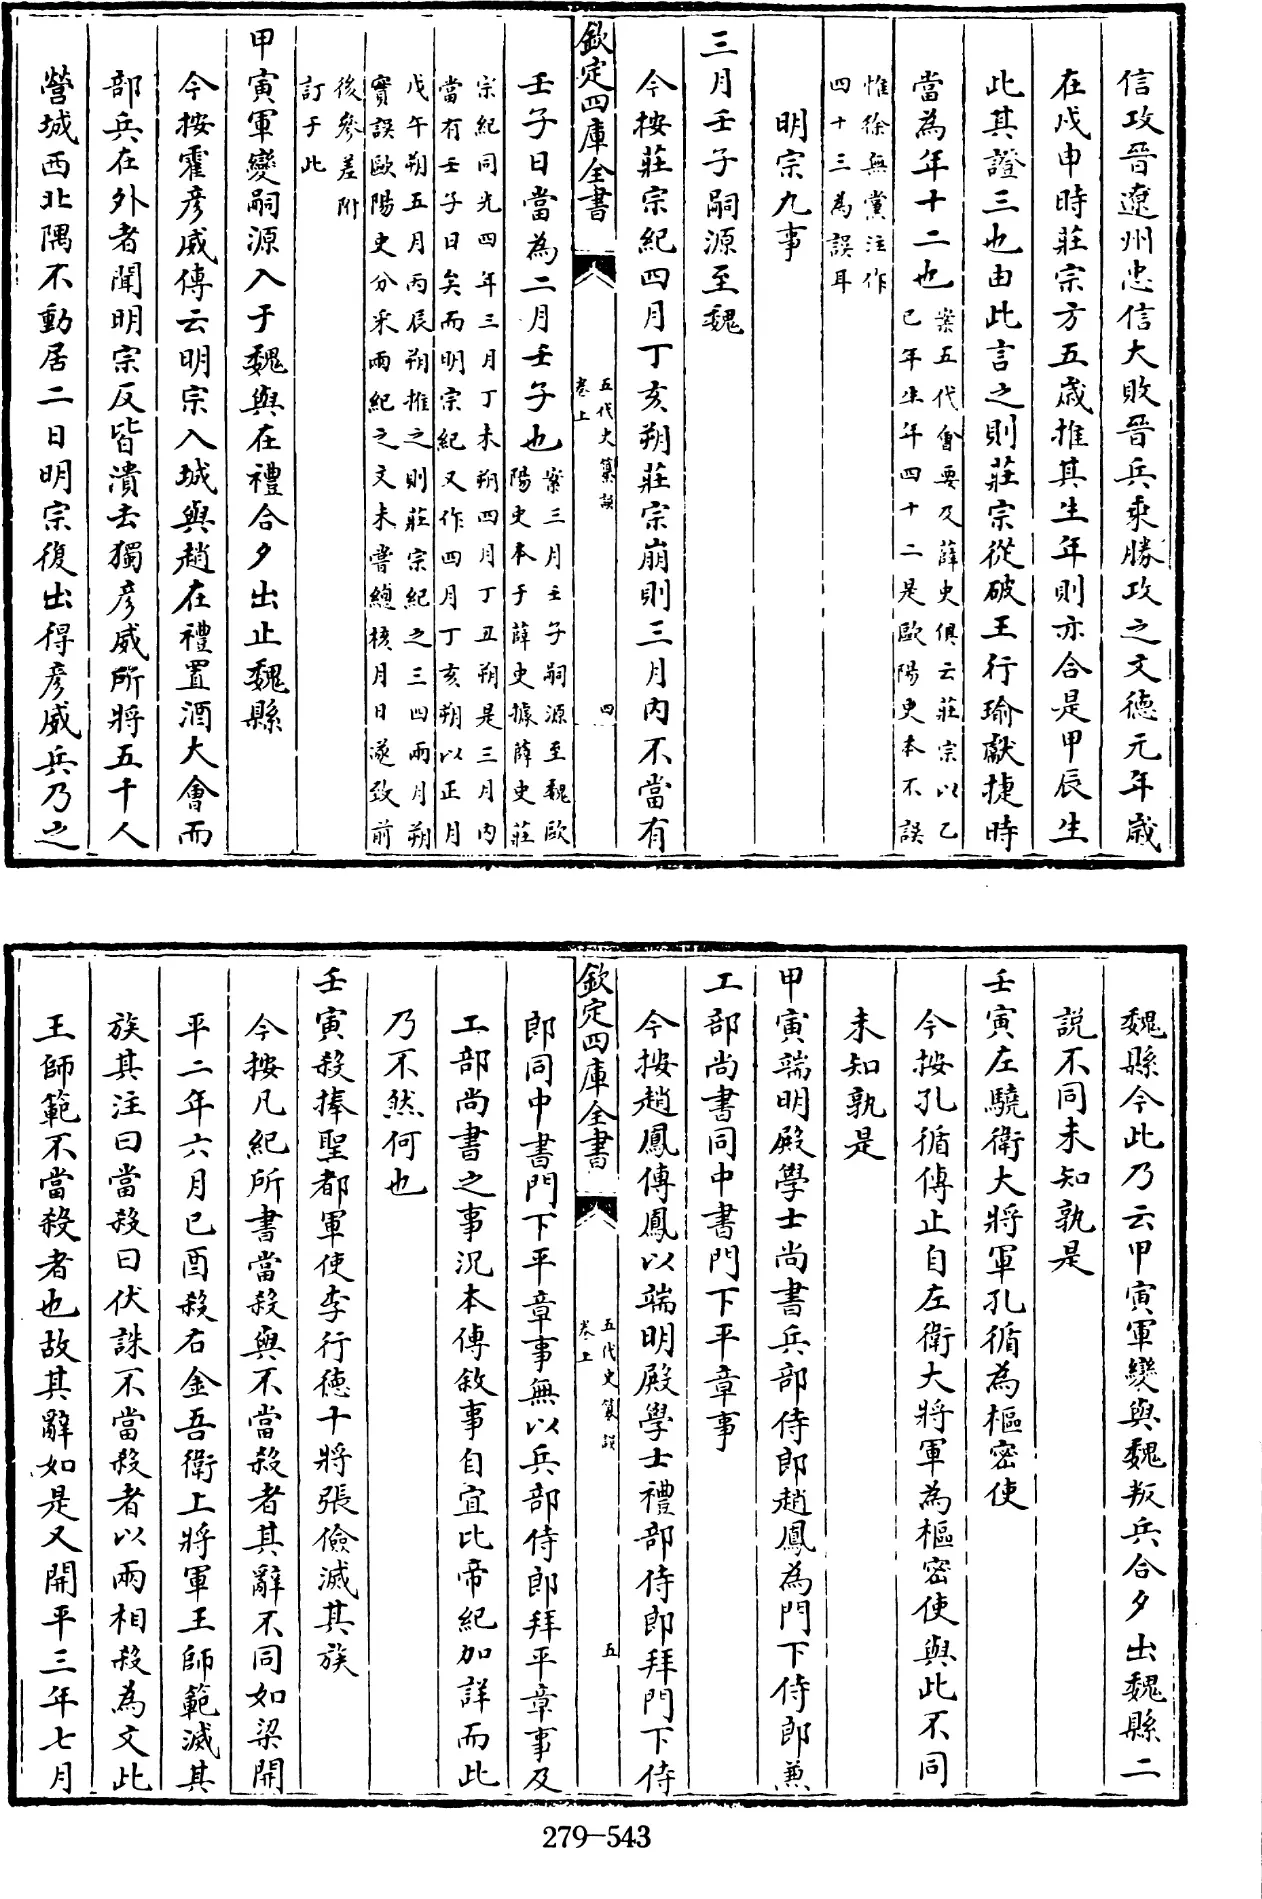 信攻晉遼州忠信大敗晉兵乘勝攻之文德元年歳
在戊申時莊宗方五歳推其生年則亦合是甲辰生
此其證三也由此言之則莊宗從破王行瑜獻捷時
當為年十二也案五代㑹要及薛史俱云莊宗以乙
巳年生年四十二是歐陽史本不誤
惟徐無黨注作
四十三為誤耳
明宗九事
三月壬子嗣源至魏
今按莊宗紀四月丁亥朔莊宗崩則三月内不當有
欽定四庫全書
五代史纂誤
卷上
四
壬子日當為二月壬子也案三月壬子嗣源至魏歐
陽史本于薛史據薛史莊
宗紀同光四年三月丁未朔四月丁丑朔是三月内
當有壬子日矣而明宗紀又作四月丁亥朔以正月
戊午朔五月丙辰朔推之則莊宗紀之三四兩月朔
實誤歐陽史分采兩紀之文未嘗總核月日遂致前
後參差附
訂于此
甲寅軍變嗣源入于魏與在禮合夕出止魏縣
今按霍彦威傳云明宗入城與趙在禮置酒大會而
部兵在外者聞明宗反皆潰去獨彦威所將五千人
營城西北隅不動居二日明宗復出得彦威兵乃之
魏縣今此乃云甲寅軍變與魏叛兵合夕出魏縣二
説不同未知孰是
壬寅左驍衛大將軍孔循為樞密使
今按孔循傳止自左衛大將軍為樞密使與此不同
未知孰是
甲寅端明殿學士尚書兵部侍郎趙鳳為門下侍郎兼
工部尚書同中書門下平章事
今按趙鳳傳鳳以端明殿學士禮部侍郎拜門下侍
欽定四庫全書
五代史纂誤
卷上
五
郎同中書門下平章事無以兵部侍郎拜平章事及
工部尚書之事況本傳敘事自宜比帝紀加詳而此
乃不然何也
壬寅殺捧聖都軍使李行徳十將張儉滅其族
今按凡紀所書當殺與不當殺者其辭不同如梁開
平二年六月己酉殺右金吾衛上將軍王師範滅其
族其注曰當殺曰伏誅不當殺者以兩相殺為文此
王師範不當殺者也故其辭如是又開平三年七月
279-543